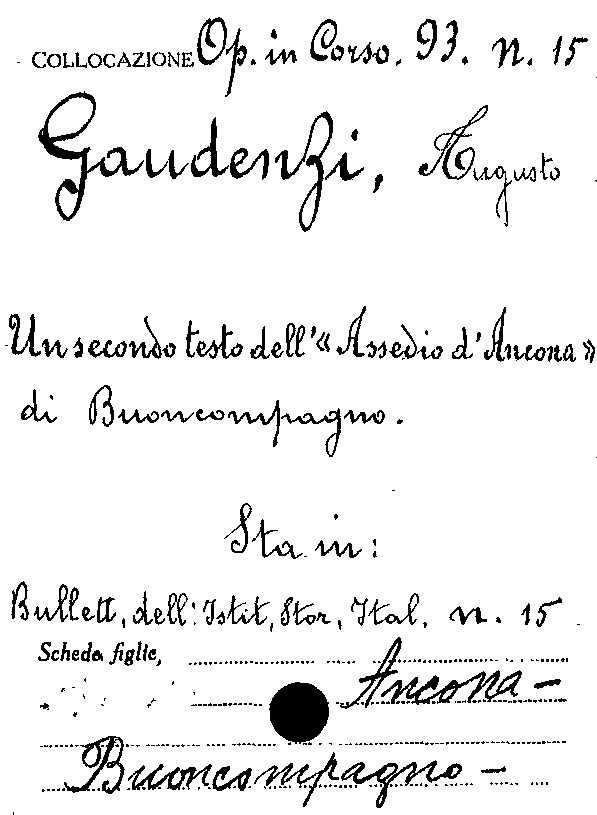 COLLOCAZIONE Op. in Corso. 93. n. 15
Gaudenzi, Augusto
Un secondo testo dell'« Assedio d'Ancona»
di Buoncompagno.
Sta in:
Bullett. dell'Istit. Stor. Ital. n. 15
Scheda figlie,
Ancona -
Buoncompagno -